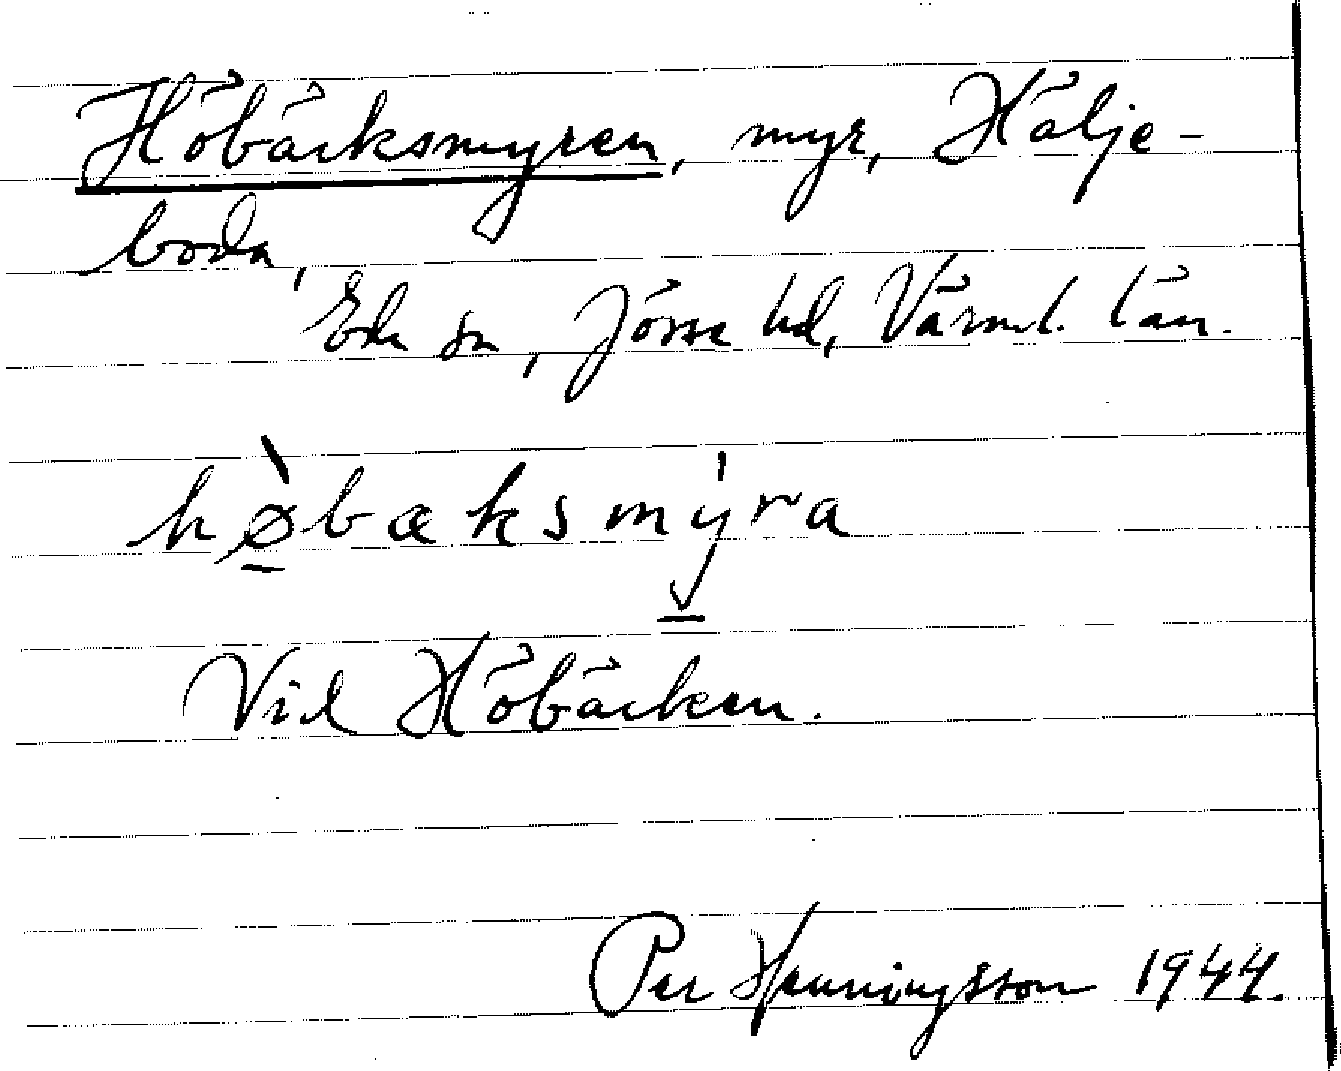 Höbäcksmyren, myr, Hälje-
boda,
Eda sn, Jösse hd, Värml. län.
hø̀bæksmy̍ra
Vid Höbäcken.
Per Henningsson 1944.